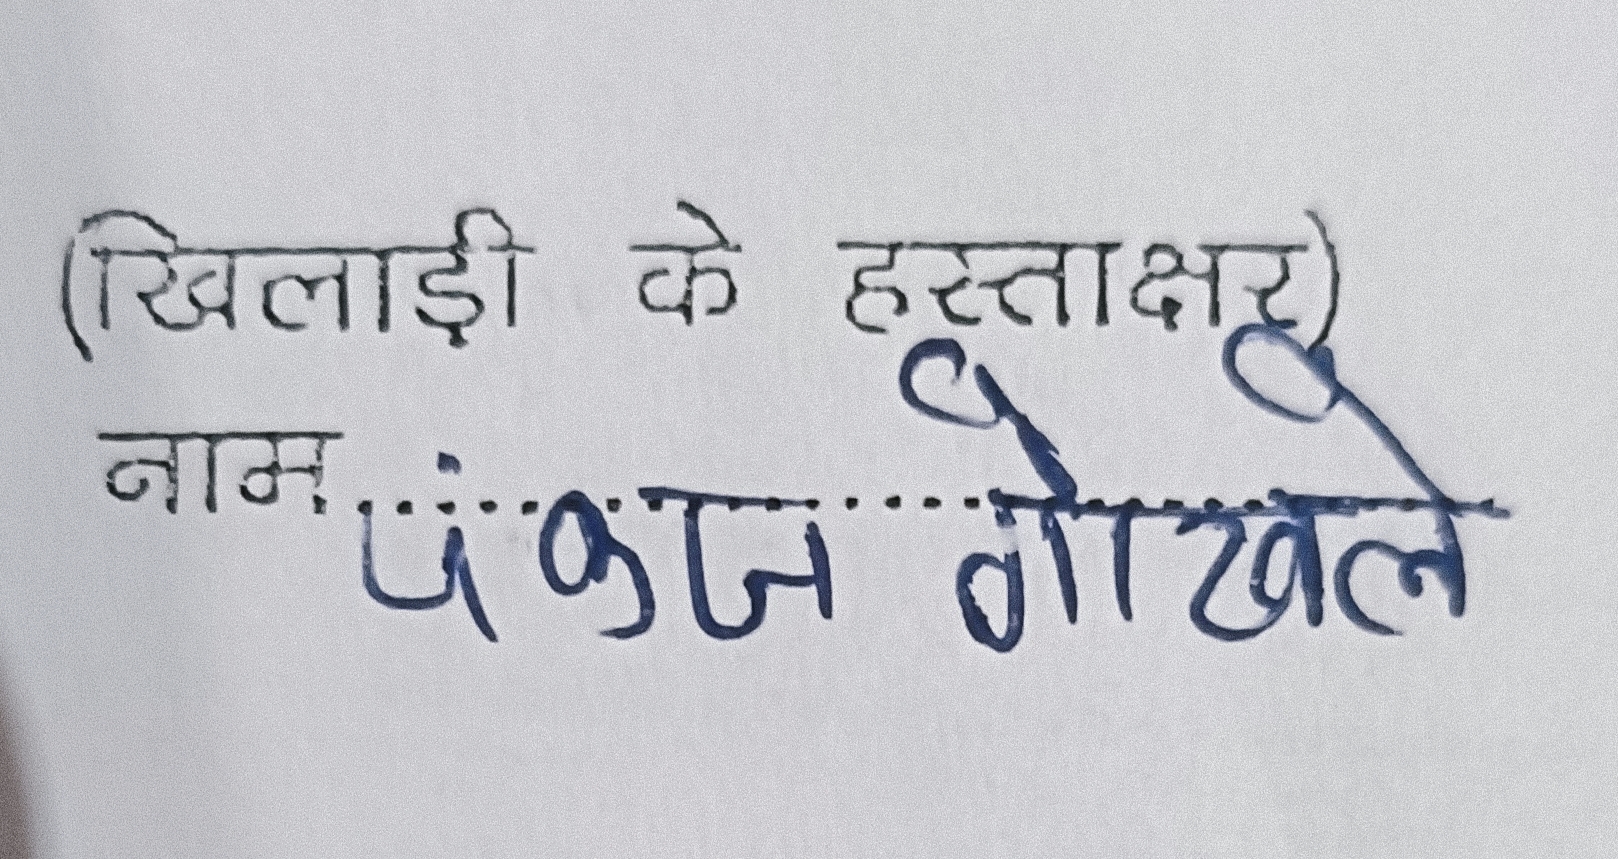 (खिलाड़ी के हस्ताक्षर)
नाम.................... पंकज गोखले